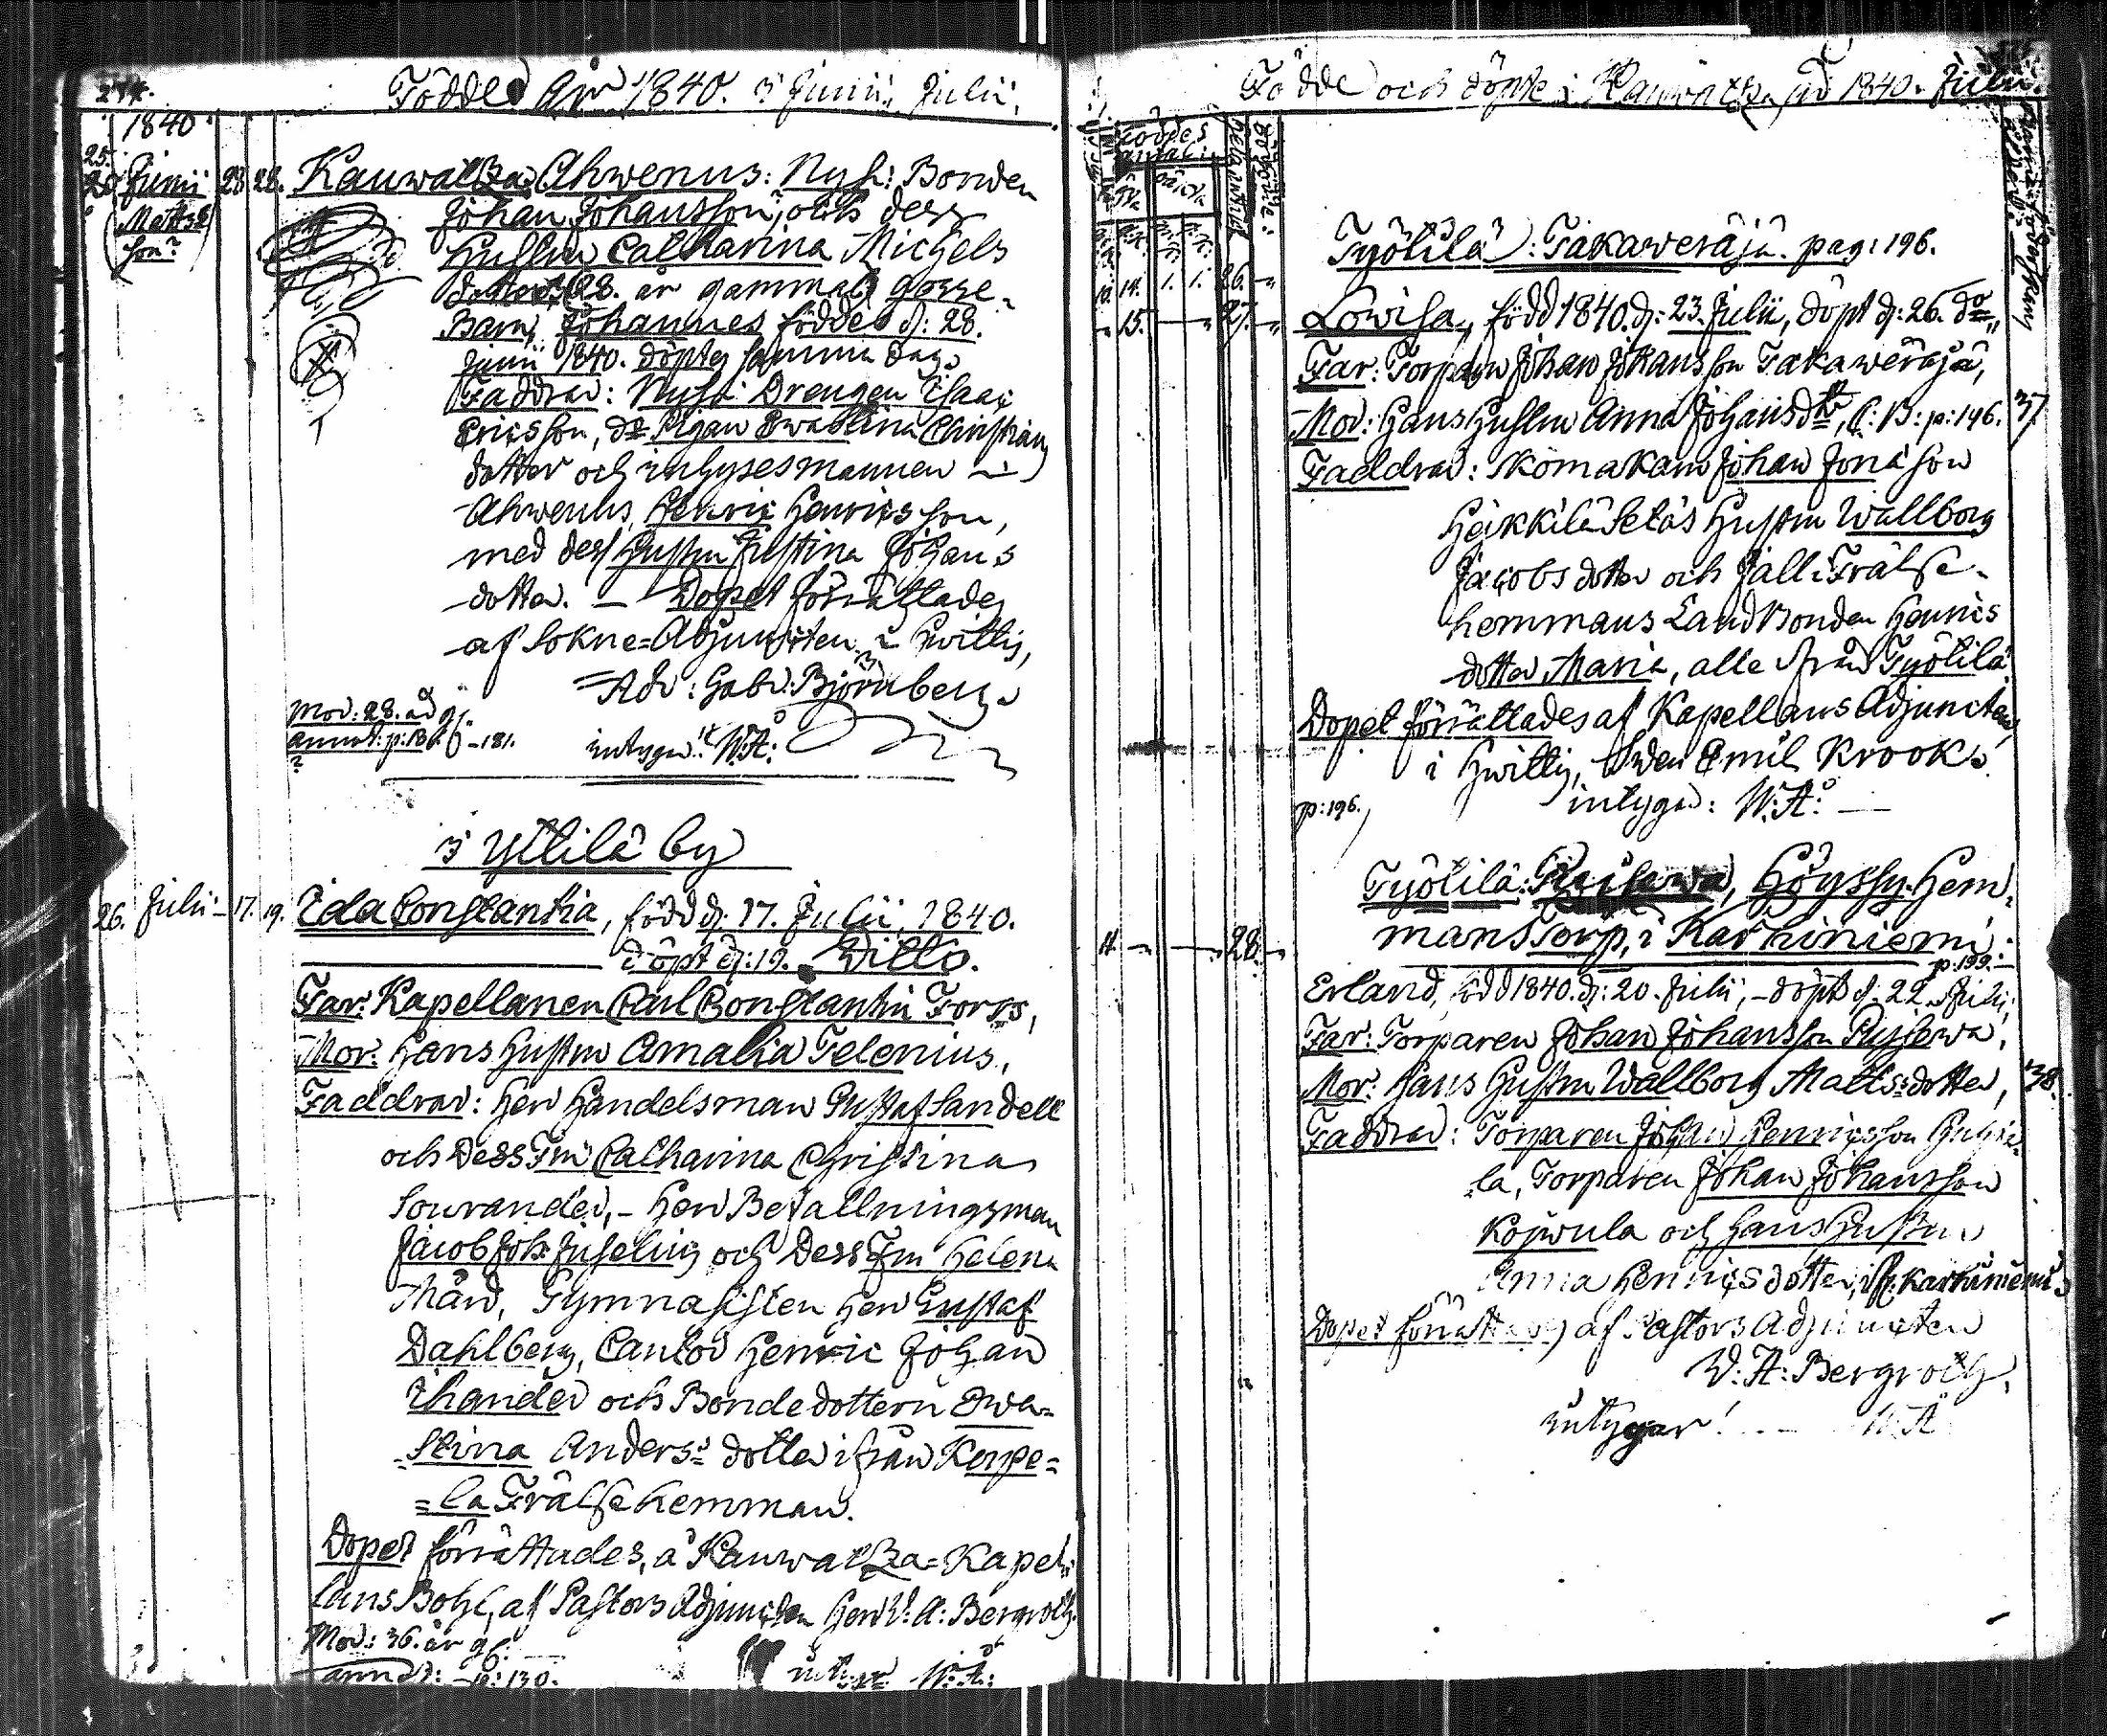 Föddes År 1840. i Junii, Julii.
1840
25.
Junii 28 28.
(Matts
son?
Kauwatza, Ahwenus: Nyb: Bonden
Johan Johansson, och dess
Hustru Catharina Michels
dotters 28. år gammal gosse-
Barn, Johannes föddes d: 28.
Junii 1840. döptes samma dag.
Faddrar: Nyb: Drengen Isaac
Ericsson, do Pigan Ewastina Christians
dotter och inhysesmannen i
Ahwenus, Henric Henricsson,
med dess Hustru Justina Johans
dotter. — Dopet förrättades
af Sokne-Adjuncten i Hwittis,
Adr: Gabr: Björnberg.
Mor: 28. år gl.
annot: p: 181.
intygar W:Å:
i Yttilä by
26. Julii 17. 19. Ida Constantia, född d: 17. Julii, 1840.
döpt d: 19. Ditto.
Far: Kapellanen Carl Constantin Forss,
Mor: Hans Hustru Amalia Telenius,
Faddrar: Herr Handelsman Gustaf Sandell
och Dess Fru Catharina Christina
Sourander, — Herr Befallningsman
Jacob Joh: Juselius och Dess Fru Helena
Mård, Gymnasisten Herr Gustaf
Dahlberg, Cantor Henric Johan
Thander och Bondedottern Ewa-
Stina Anders: dotter ifrån Kerpe=
=la Frälsehemman.
Dopet förrättades, å Kauwatza-Kapel-
lans Bohl, af Pastors Adjuncten Herr W: A: Bergroth.
Mor: 36. år gl.
annot: p: 130.
intygar W: Å:
Födde och döpte i Kauwatza, år 1840. Julii
Föddes
antal
10. 14. 1. 1. 26.
15. 27.
Työtilä: Takaweräjä. pag: 196.
Lowisa, född 1840. d: 23. Julii, döpt d: 26. do
Far: Torparen Johan Johansson Takaweräjä,
Mor: Hans Hustru Anna Johansdtr, C: B: p: 196. 37
Faddrar: Skomakarn Johan Jonasson
Heikkilä Setäs Hustru Wallborg
Jacobsdotter och Jalli Frälse-
hemmans LandBonden Henrics
dotter Maria, alle ifrån Työtilä.
Dopet förrättades af Kapellans Adjuncten
i Hwittis, Sven Emil Krook.
p: 196.
intygar: W: Å:
Työtilä: Höyssy. Hem-
mans Torp, i Karhiniemi:
p: 199.
11. 28.
Erland, född 1840. d: 20. Julii, — döpt d. 22. Julii,
Far: Torparen Johan Johansson
Mor: Hans Hustru Wallborg Matts: dotter, 38.
Faddrar: Torparen Johan Henricsson
la, Torparen Johan Johansson
Kojwula och Hans Hustru
Anna Henricsdotter, Karhiniemi
Dopet förrättades af Pastors Adjuncten
W: A: Bergroth,
intygar! W. Å